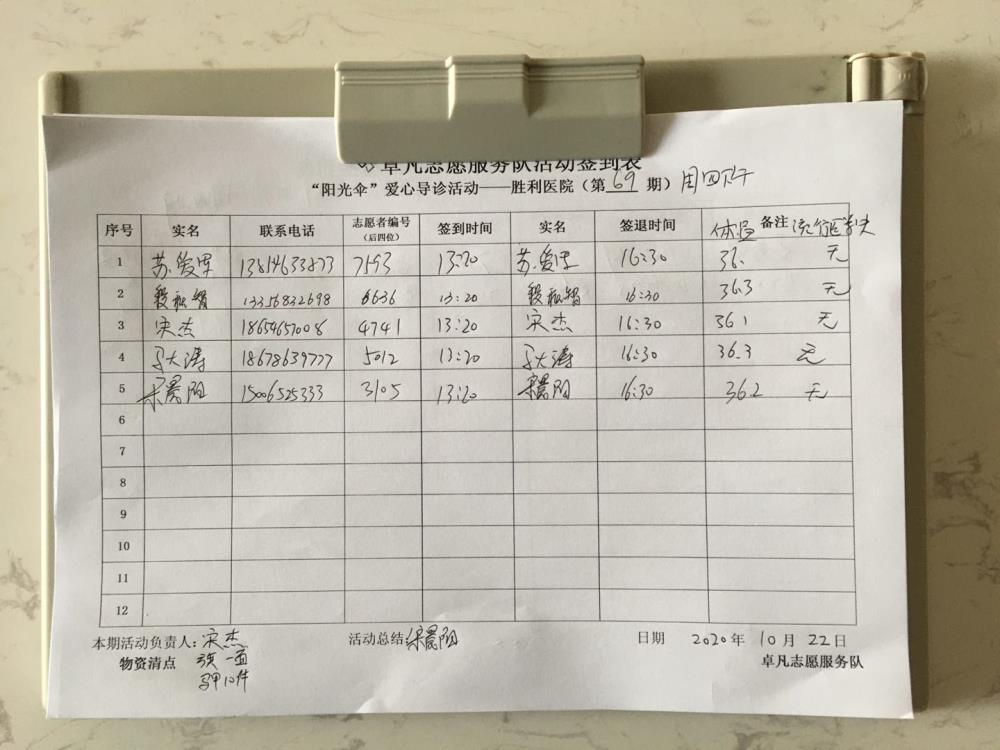 卓凡志愿服务队活动签到表
“阳光伞”爱心导诊活动——胜利医院（第69期）周四下午
序号 实名 联系电话 志愿者编号（后四位） 签到时间 实名 签退时间 体温 备注
1 苏爱 13814633873 7593 13:20 苏爱 16:30 36. 无
2 13356832698 6636 13:20 16:30 36.3 无
3 宋杰 18654657008 4741 13:20 宋杰 16:30 36.1 无
4 马大涛 18678639777 5012 13:20 马大涛 16:30 36.3 无
5 15006525333 3105 13:20 16:30 36.2 无
6
7
8
9
10
11
12
本期活动负责人：宋杰 活动总结： 日期 2020年10月22日
物资清点 一面 卓凡志愿服务队
马甲10件